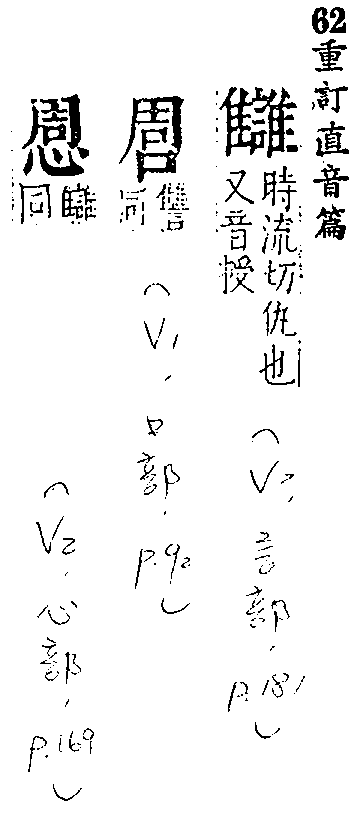 62重訂直音篇
讎
時流切仇也
又音授
(V2,言部,P.181)
讐
同
(V1,口部,P.92)
讎
同
(V2,心部,P.169)